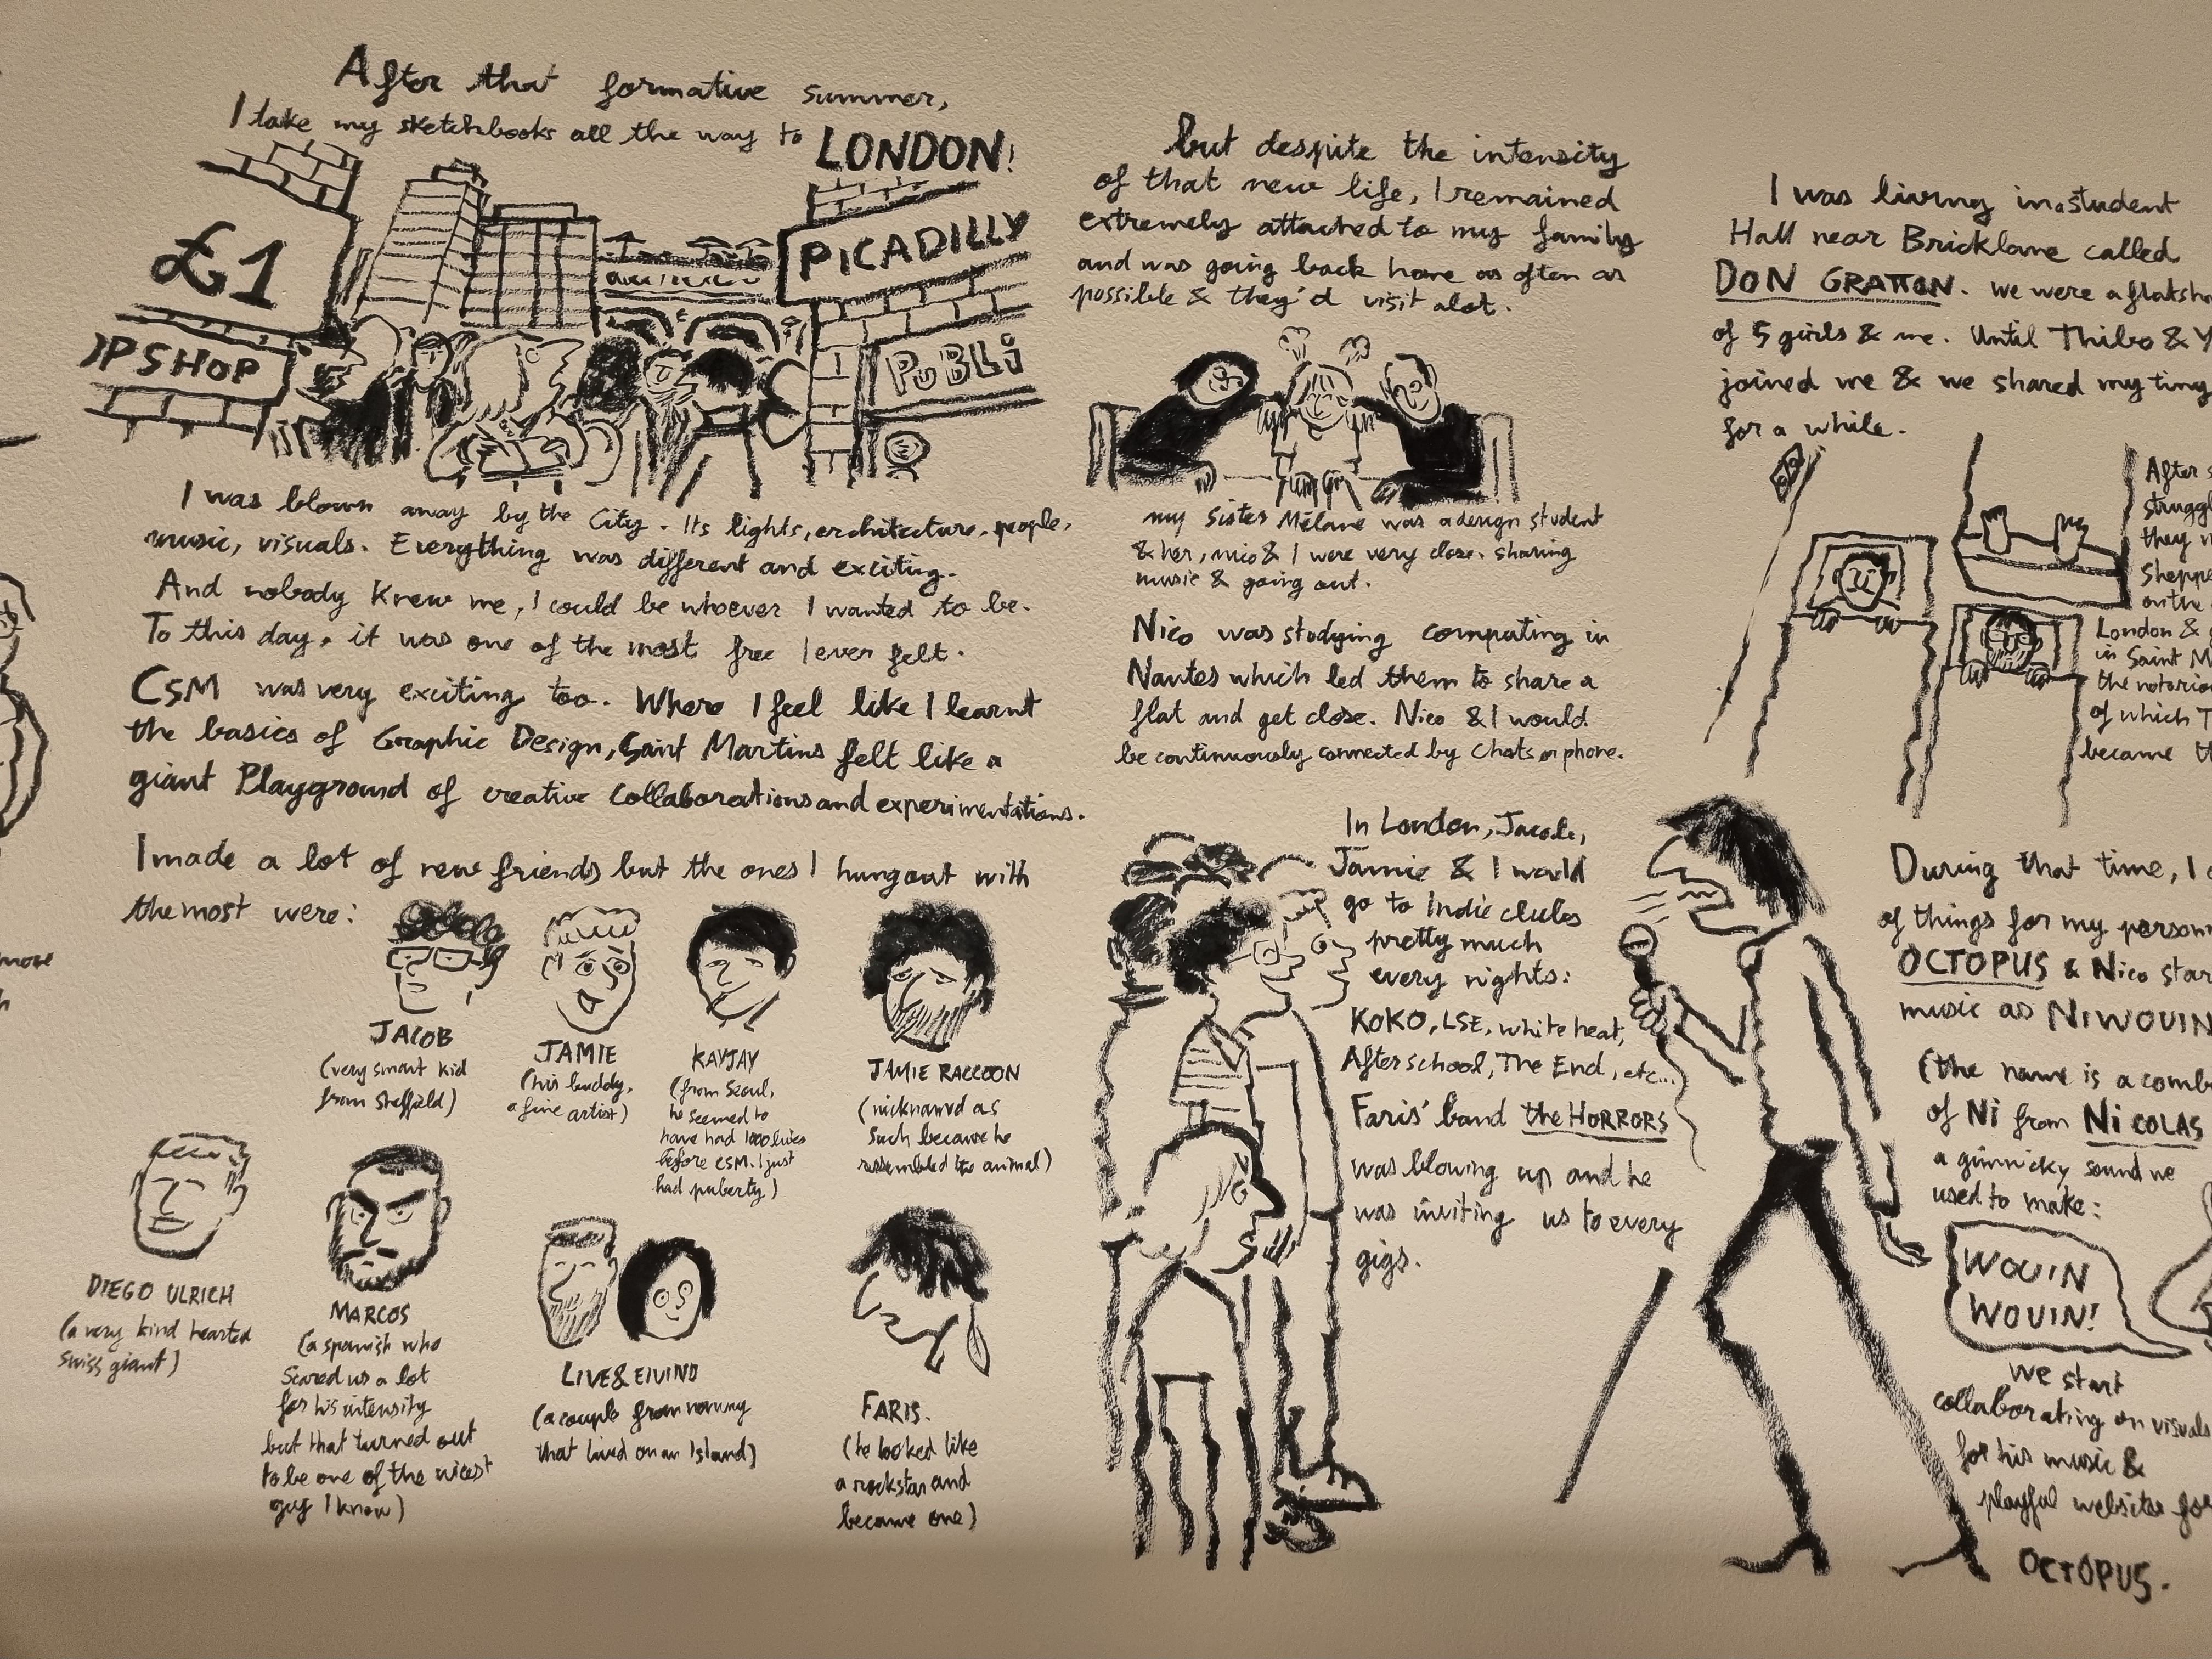 After that formative summer,
I take my sketchbooks all the way to LONDON!
£1
PSHOP
PICADILLY
PUBLi
I was blown away by the City. Its lights, architecture, people,
music, visuals. Everything was different and exciting.
And nobody knew me, I could be whoever I wanted to be.
To this day, it was one of the most free I ever felt.
CSM was very exciting too. Where I feel like I learnt
the basics of Graphic Design, Saint Martins felt like a
giant Playground of creative Collaborations and experimentations.
I made a lot of new friends but the ones I hungout with
the most were:
JACOB
(very smart kid
from Sheffield)
JAMIE
(his buddy,
a fine artist)
KAYJAY
(from Seoul,
he seemed to
have had 1000 lives
before CSM. I just
had puberty)
JAMIE RACCOON
(nicknamed as
such because he
ressembled the animal)
DIEGO ULRICH
(a very kind hearted
swiss giant)
MARCOS
(a spanish who
Scared us a lot
for his intensity
but that turned out
to be one of the nicest
guy I know)
LIVE & EIVIND
(a couple from norway
that lived on an Island)
FARIS.
(he looked like
a rockstar and
became one)
but despite the intensity
of that new life, I remained
extremely attached to my family
and was going back home as often as
possible & they'd visit alot.
my sister Mélane was a design student
& her, nico & I were very close. sharing
music & going out.
Nico was studying computing in
Nantes which led them to share a
flat and get close. Nico & I would
be continuously connected by Chats or phone.
In London, Jacob,
Jamie & I would
go to Indie clubs
pretty much
every nights:
KOKO, LSE, white heat,
Afterschool, The End, etc...
Faris' band the HORRORS
was blowing up and he
was inviting us to every
gigs.
I was living in a student
Hall near Bricklane called
DON GRATTON. We were a flatsh
of 5 girls & me. Until Thibo & Y
joined me & we shared my tiny
for a while.
After s
struggl
they
Sheppe
on the
London &
in Saint M
the notorio
of which T
became th
During that time, I
of things for my person
OCTOPUS & Nico star
music as NIWOUIN
(the name is a comb
of Ni from NiCOLAS
a gimmicky sound we
used to make:
WOUIN
WOUIN!
we start
collaborating on visuals
for his music &
playful websites for
OCTOPUS.
more